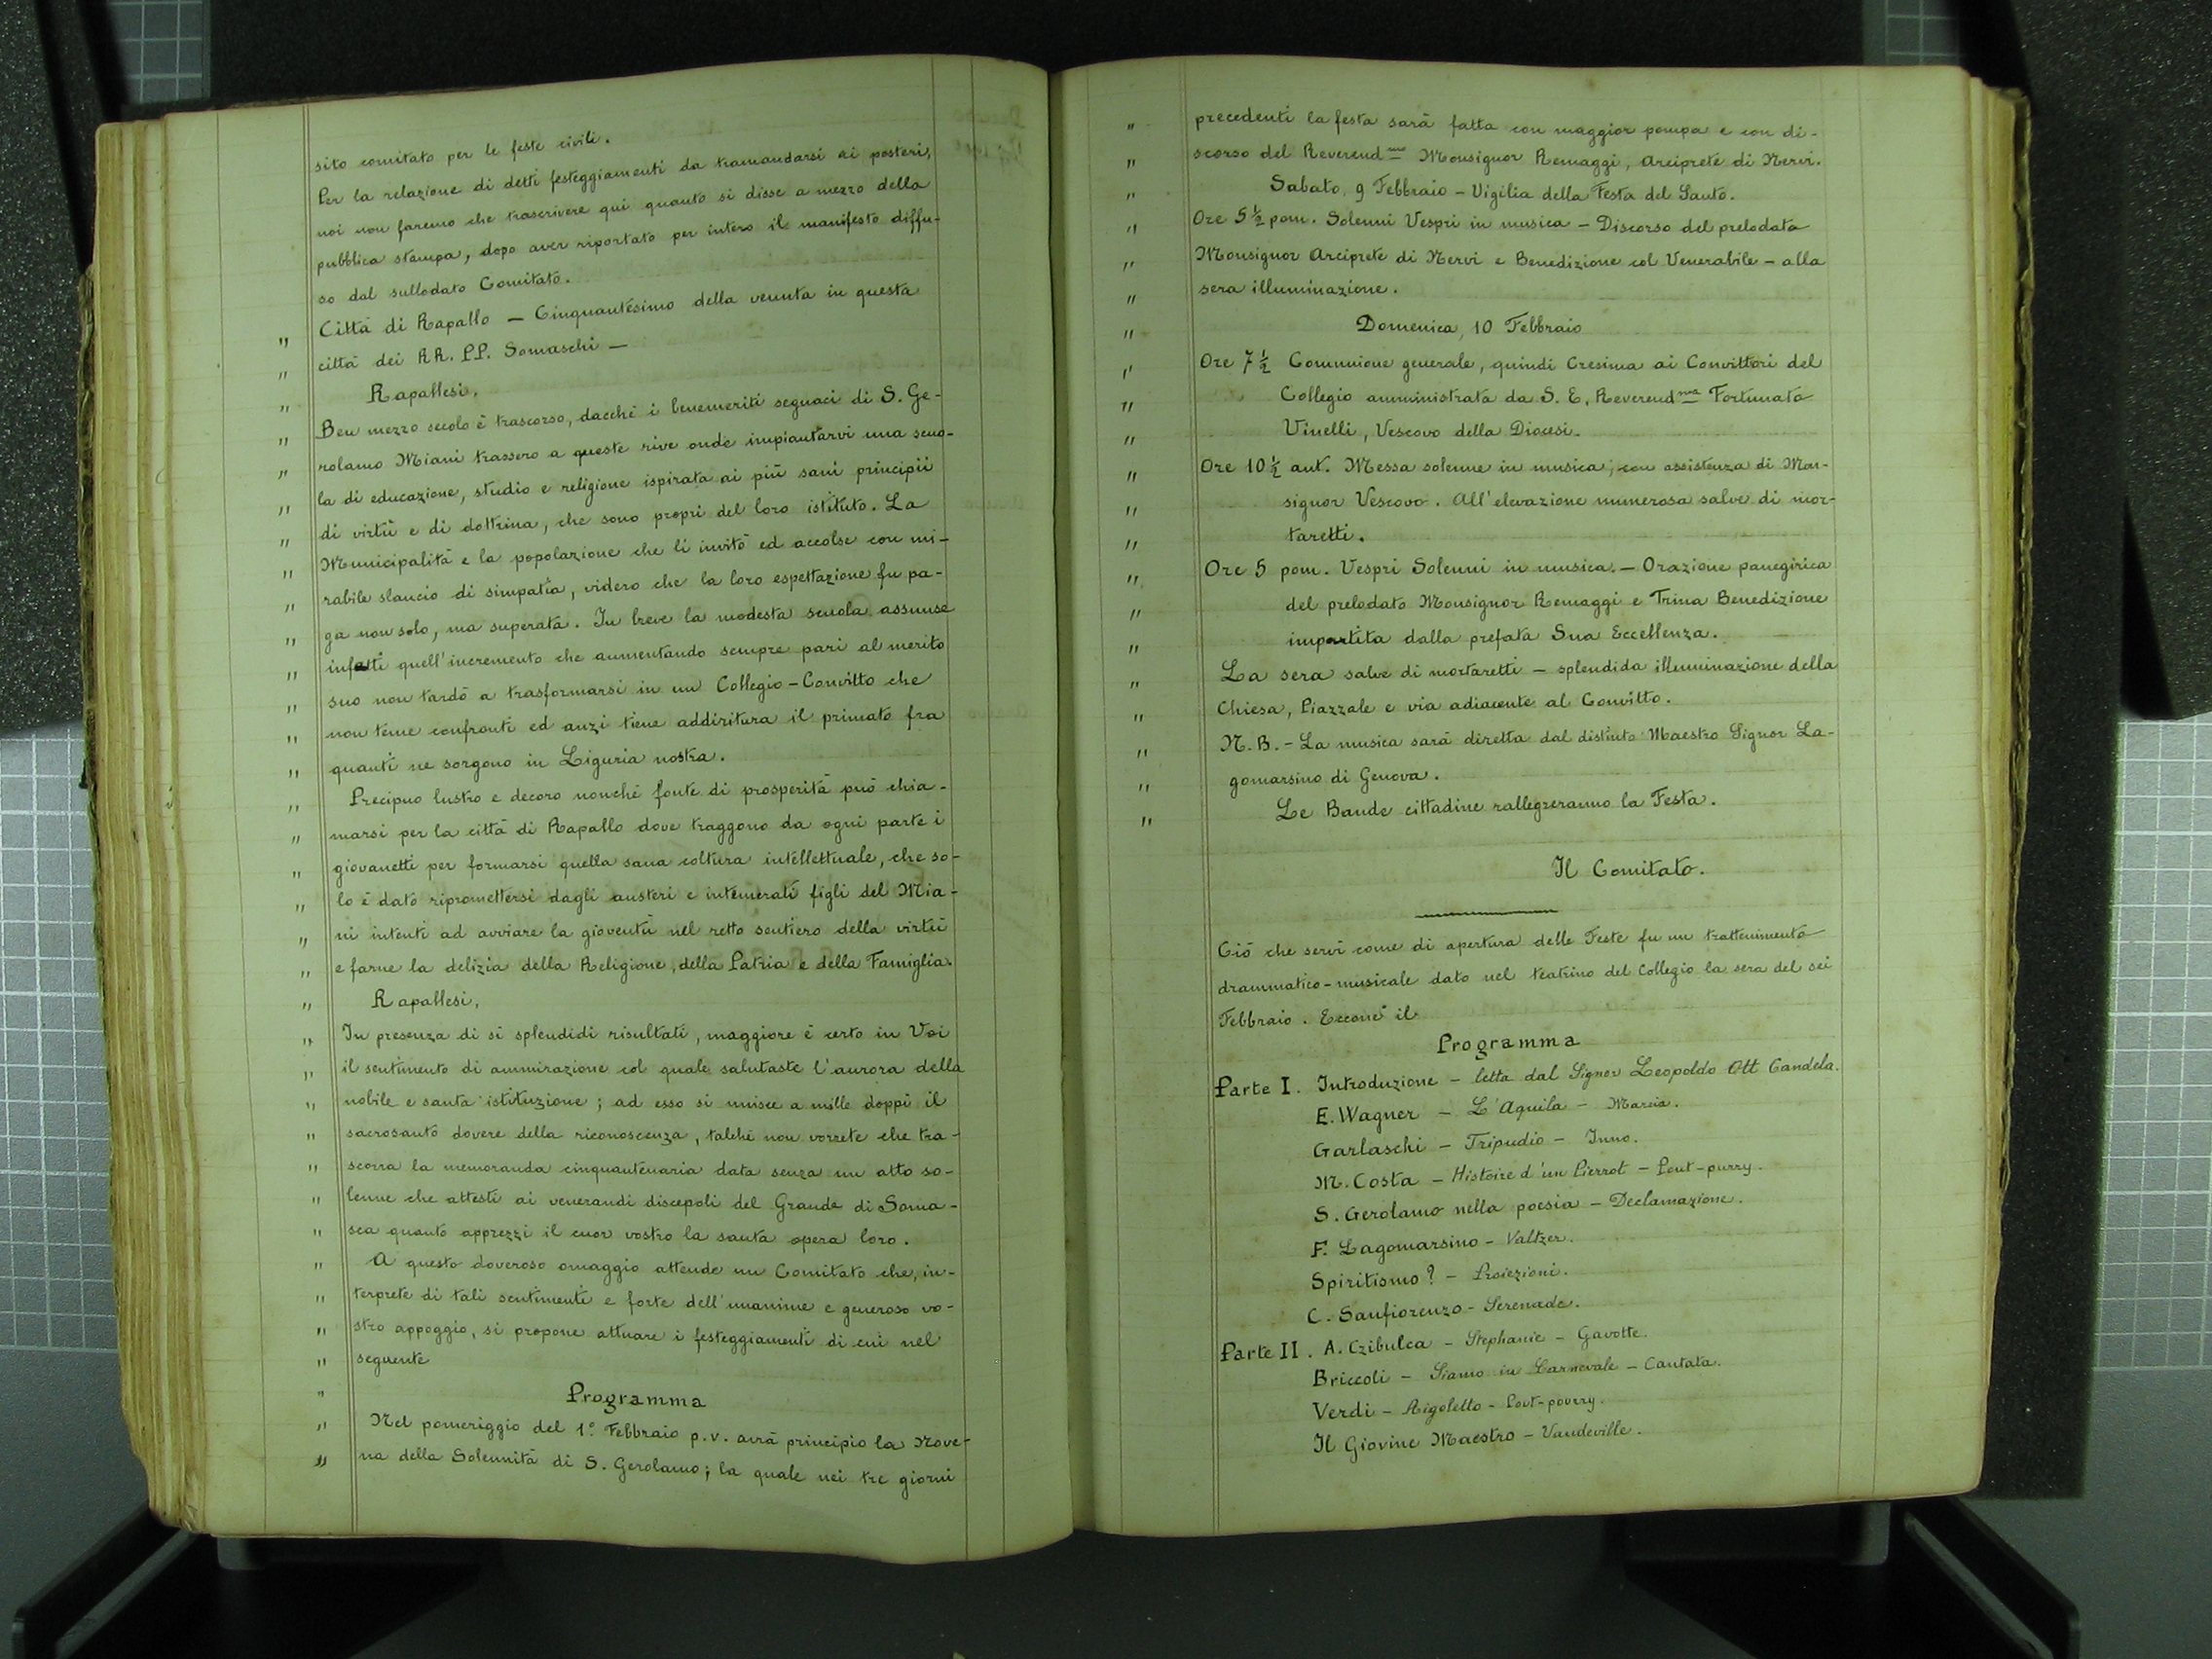 sito comitato per le feste civili.
Per la relazione di detti festeggiamenti da tramandarsi ai posteri,
noi non faremo che trascrivere qui quanto si disse a mezzo della
pubblica stampa, dopo aver riportato per intero il manifesto diffu-
so dal sullodato Comitato.
" Città di Rapallo — Cinquantesimo della venuta in questa
" città dei RR. PP. Somaschi —
" Rapallesi,
" Ben mezzo secolo è trascorso, dacchè i benemeriti seguaci di S. Ge-
" rolamo Miani trassero a queste rive onde impiantarvi una scuo-
" la di educazione, studio e religione ispirata ai più sani principii
" di virtù e di dottrina, che sono propri del loro istituto. La
" Municipalità e la popolazione che li invitò ed accolse con mi-
" rabile slancio di simpatia, videro che la loro espettazione fu pa-
" ga non solo, ma superata. In breve la modesta scuola assunse
" infatti quell'incremento che aumentando sempre pari al merito
" suo non tardò a trasformarsi in un Collegio-Convitto che
" non teme confronti ed anzi tiene addiritura il primato fra
" quanti ne sorgono in Liguria nostra.
" Precipuo lustro e decoro nonchè fonte di prosperità può chia-
" marsi per la città di Rapallo dove traggono da ogni parte i
" giovanetti per formarsi quella sana coltura intellettuale, che so-
" lo è dato ripromettersi dagli austeri e intemerati figli del Mia-
" ni intenti ad avviare la gioventù nel retto sentiero della virtù
" e farne la delizia della Religione, della Patria e della Famiglia.
" Rapallesi,
" In presenza di sì splendidi risultati, maggiore è certo in Voi
" il sentimento di ammirazione col quale salutaste l'aurora della
" nobile e santa istituzione; ad esso si unisce a mille doppi il
" sacrosanto dovere della riconoscenza, talchè non vorrete che tra-
" scorra la memoranda cinquantenaria data senza un atto so-
" lenne che attesti ai venerandi discepoli del Grande di Soma-
" sca quanto apprezzi il cuor vostro la santa opera loro.
" A questo doveroso omaggio attende un Comitato che, in-
" terprete di tali sentimenti e forte dell'unanime e generoso vo-
" stro appoggio, si propone attuare i festeggiamenti di cui nel
" seguente
" Programma
" Nel pomeriggio del 1º Febbraio p.v. avrà principio la Nove-
" na della Solennità di S. Gerolamo; la quale nei tre giorni
" precedenti la festa sarà fatta con maggior pompa e con di-
" scorso del Reverendmo Monsignor Remaggi, Arciprete di Nervi.
" Sabato, 9 Febbraio – Vigilia della Festa del Santo.
" Ore 5½ pom. Solenni Vespri in musica – Discorso del prelodato
" Monsignor Arciprete di Nervi e Benedizione col Venerabile – alla
" sera illuminazione.
" Domenica, 10 Febbraio
" Ore 7½ Comunione generale, quindi Cresima ai Convittori del
" Collegio amministrata da S. E. Reverendma Fortunato
" Vinelli, Vescovo della Diocesi.
" Ore 10½ ant. Messa solenne in musica, con assistenza di Mon-
" signor Vescovo. All'elevazione numerosa salve di mor-
" taretti.
" Ore 5 pom. Vespri Solenni in musica. – Orazione panegirica
" del prelodato Monsignor Remaggi e Trina Benedizione
" impartita dalla prefata Sua Eccellenza.
" La sera salve di mortaretti – splendida illuminazione della
" Chiesa, Piazzale e via adiacente al Convitto.
" N.B. – La musica sarà diretta dal distinto Maestro Signor La-
" gomarsino di Genova.
" Le Bande cittadine rallegreranno la Festa.
Il Comitato.
Ciò che servì come di apertura delle Feste fu un trattenimento
drammatico-musicale dato nel teatrino del Collegio la sera del sei
Febbraio. Eccone il
Programma
Parte I. Introduzione – letta dal Signor Leopoldo Ott Candela.
E. Wagner – L'Aquila – Marcia.
Garlaschi – Tripudio – Inno.
M. Costa – Histoire d'un Pierrot – Pout-purry.
S. Gerolamo nella poesia – Declamazione.
F. Lagomarsino – Valtzer.
Spiritismo? – Proiezioni.
C. Sanfiorenzo – Serenade.
Parte II. A. Czibulca – Stephanie – Gavotte.
Briccoli – Siamo in Carnevale – Cantata.
Verdi – Rigoletto – Pout-pourry.
Il Giovine Maestro – Vaudeville.